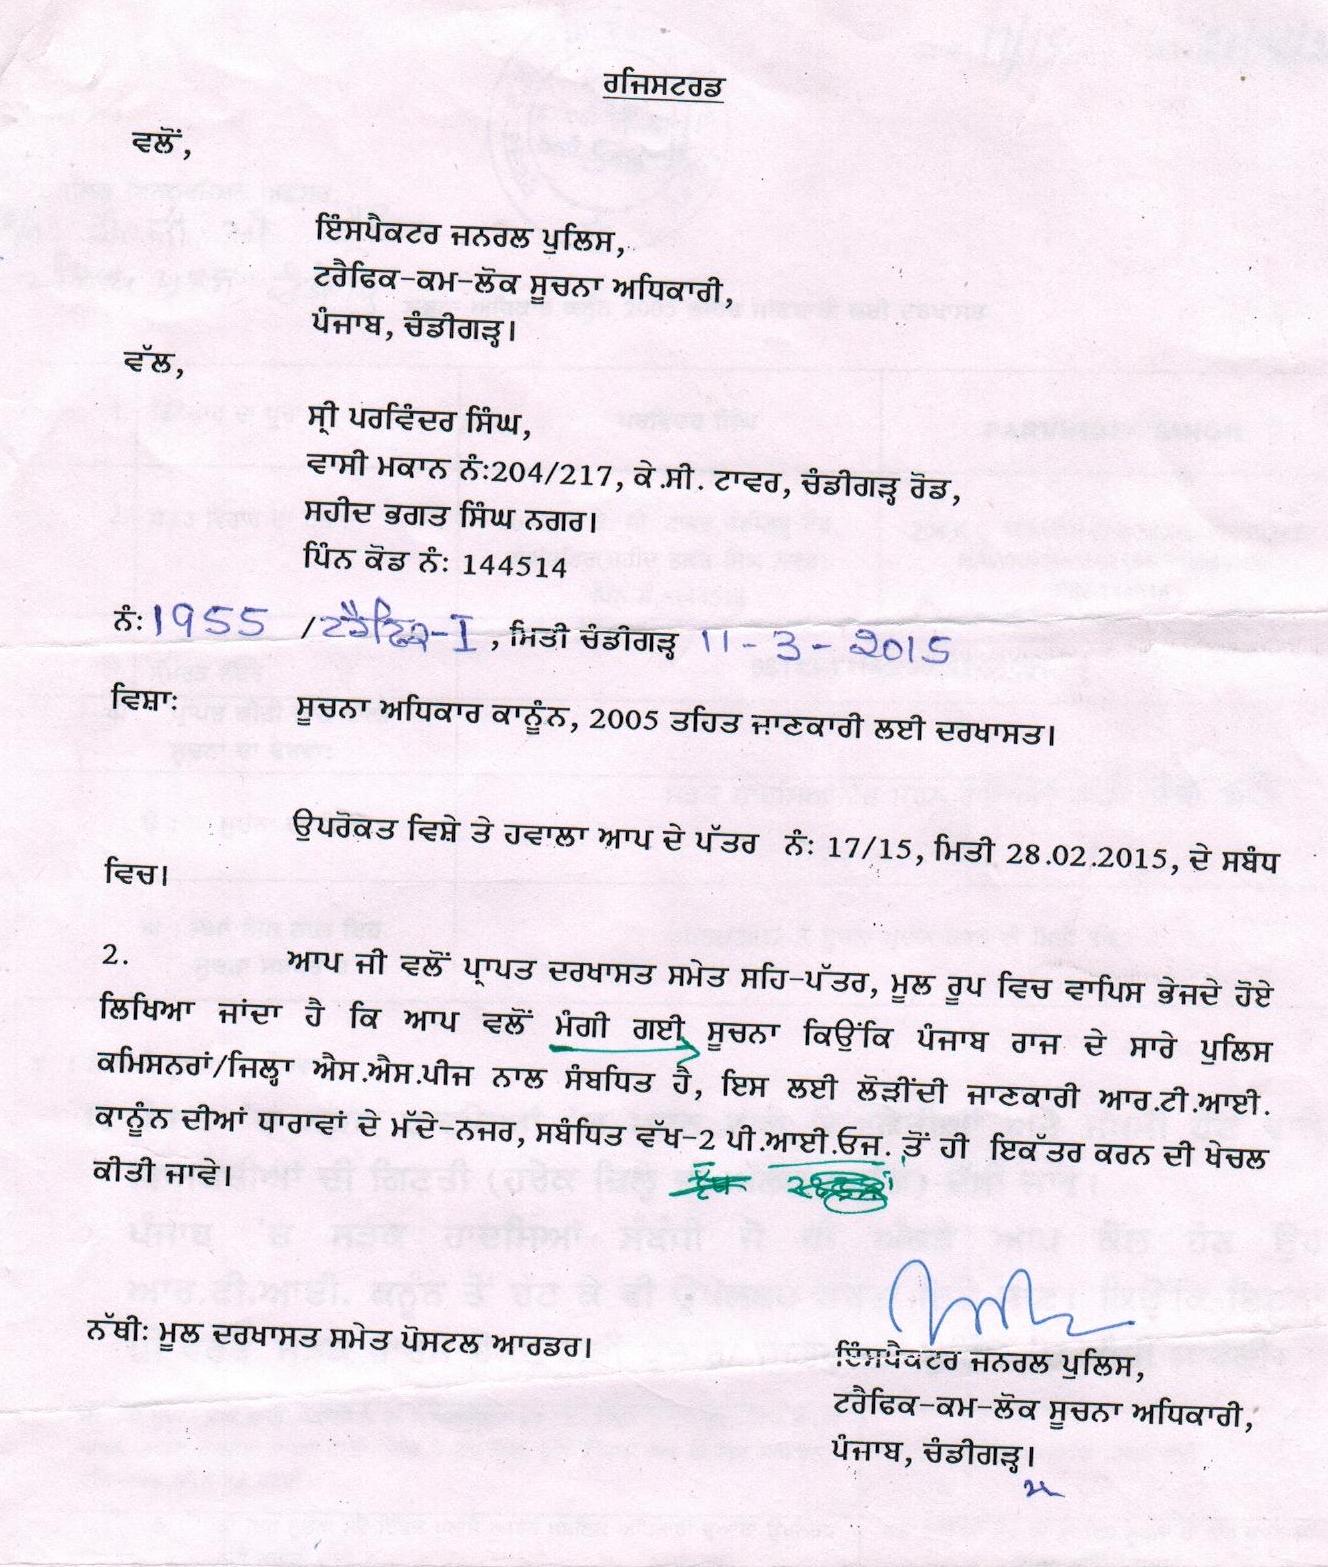 ਰਜਿਸਟਰਡ
ਵਲੋਂ,
ਇੰਸਪੈਕਟਰ ਜਨਰਲ ਪੁਲਿਸ,
ਟਰੈਫਿਕ-ਕਮ-ਲੋਕ ਸੂਚਨਾ ਅਧਿਕਾਰੀ,
ਪੰਜਾਬ, ਚੰਡੀਗੜ੍ਹ।
ਵੱਲ,
ਸ੍ਰੀ ਪਰਵਿੰਦਰ ਸਿੰਘ,
ਵਾਸੀ ਮਕਾਨ ਨੰ:204/217, ਕੇ.ਸੀ. ਟਾਵਰ, ਚੰਡੀਗੜ੍ਹ ਰੋਡ,
ਸਹੀਦ ਭਗਤ ਸਿੰਘ ਨਗਰ।
ਪਿੰਨ ਕੋਡ ਨੰ: 144514
ਨੰ: 1955 /ਟਰੈਫਿਕ-I , ਮਿਤੀ ਚੰਡੀਗੜ੍ਹ 11-3-2015
ਵਿਸ਼ਾ: ਸੂਚਨਾ ਅਧਿਕਾਰ ਕਾਨੂੰਨ, 2005 ਤਹਿਤ ਜਾਣਕਾਰੀ ਲਈ ਦਰਖਾਸਤ।
ਉਪਰੋਕਤ ਵਿਸ਼ੇ ਤੇ ਹਵਾਲਾ ਆਪ ਦੇ ਪੱਤਰ ਨੰ: 17/15, ਮਿਤੀ 28.02.2015, ਦੇ ਸਬੰਧ
ਵਿਚ।
2. ਆਪ ਜੀ ਵਲੋਂ ਪ੍ਰਾਪਤ ਦਰਖਾਸਤ ਸਮੇਤ ਸਹਿ-ਪੱਤਰ, ਮੂਲ ਰੂਪ ਵਿਚ ਵਾਪਿਸ ਭੇਜਦੇ ਹੋਏ
ਲਿਖਿਆ ਜਾਂਦਾ ਹੈ ਕਿ ਆਪ ਵਲੋਂ ਮੰਗੀ ਗਈ ਸੂਚਨਾ ਕਿਉਂਕਿ ਪੰਜਾਬ ਰਾਜ ਦੇ ਸਾਰੇ ਪੁਲਿਸ
ਕਮਿਸਨਰਾਂ/ਜਿਲ੍ਹਾ ਐਸ.ਐਸ.ਪੀਜ ਨਾਲ ਸੰਬਧਿਤ ਹੈ, ਇਸ ਲਈ ਲੋੜੀਂਦੀ ਜਾਣਕਾਰੀ ਆਰ.ਟੀ.ਆਈ.
ਕਾਨੂੰਨ ਦੀਆਂ ਧਾਰਾਵਾਂ ਦੇ ਮੱਦੇ-ਨਜਰ, ਸਬੰਧਿਤ ਵੱਖ-2 ਪੀ.ਆਈ.ਓਜ. ਤੋਂ ਹੀ ਇਕੱਤਰ ਕਰਨ ਦੀ ਖੇਚਲ
ਕੀਤੀ ਜਾਵੇ।
ਨੱਥੀ: ਮੂਲ ਦਰਖਾਸਤ ਸਮੇਤ ਪੋਸਟਲ ਆਰਡਰ।
ਇੰਸਪੈਕਟਰ ਜਨਰਲ ਪੁਲਿਸ,
ਟਰੈਫਿਕ-ਕਮ-ਲੋਕ ਸੂਚਨਾ ਅਧਿਕਾਰੀ,
ਪੰਜਾਬ, ਚੰਡੀਗੜ੍ਹ।